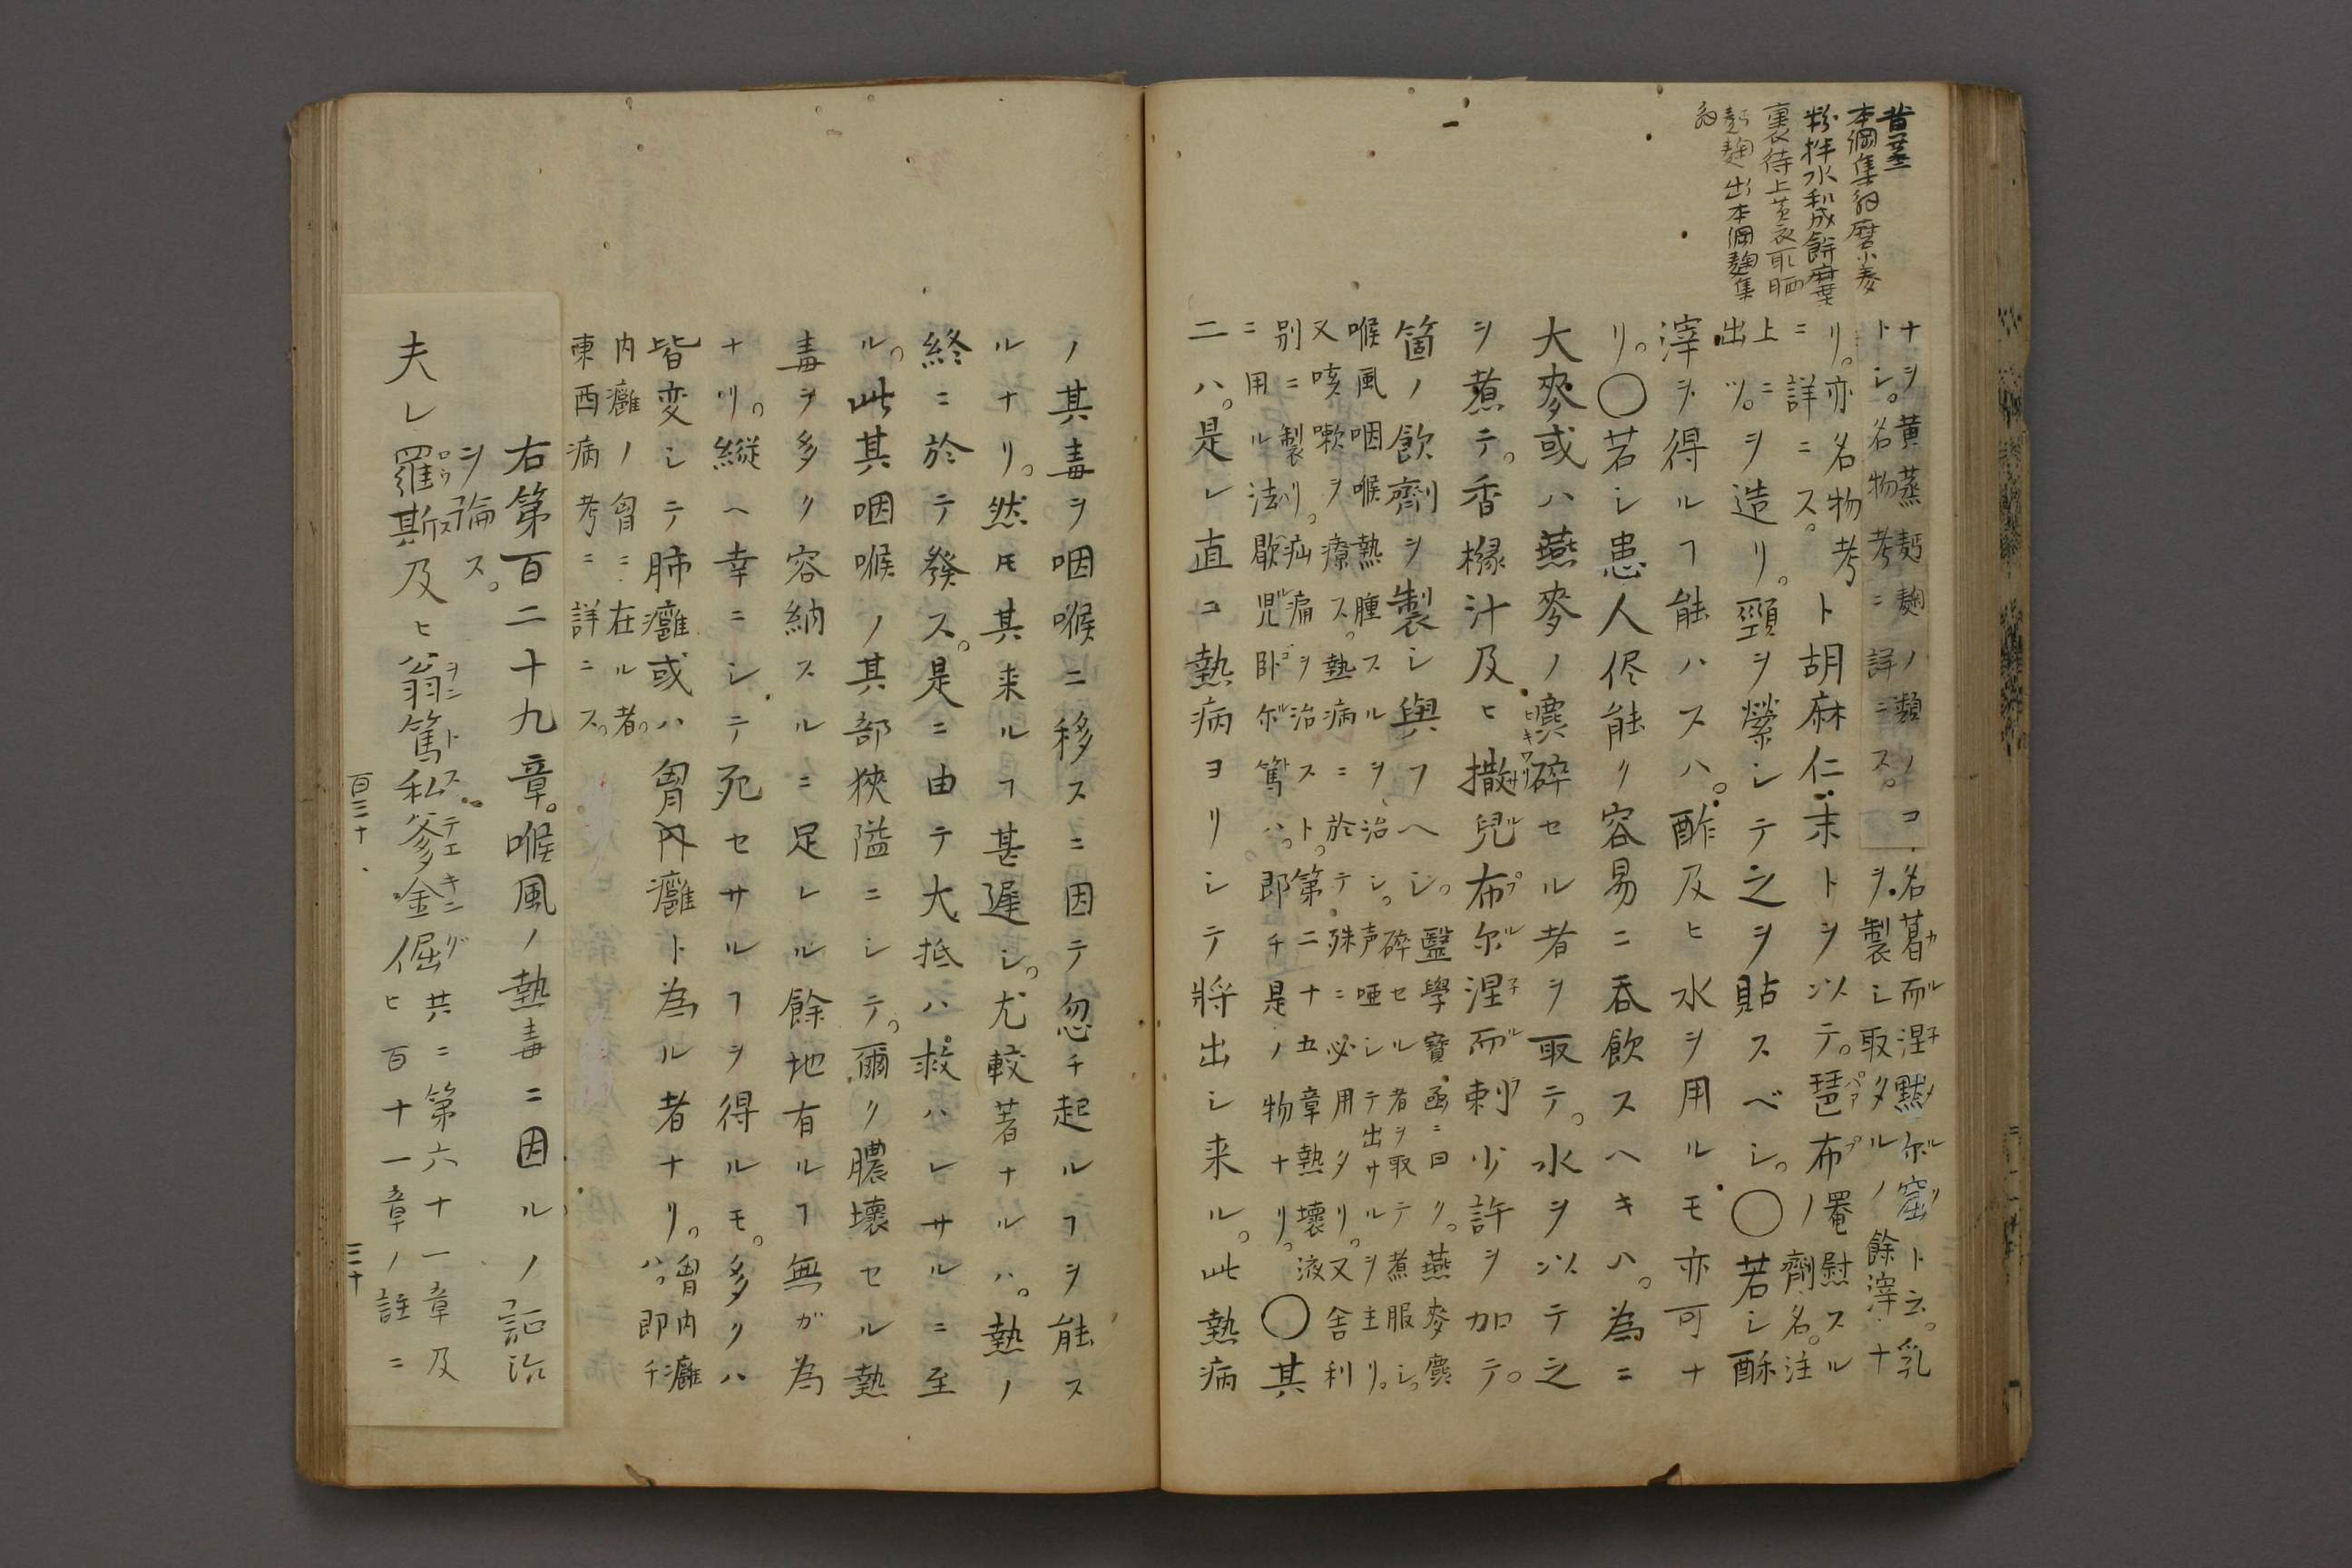 黄蒸
本綱集解磨小麥
粉拌水和成餅麻葉
裏待上黄衣取晒
麪麹出本綱麹集
解
ナヲ黄蒸麪麹ノ類ノコ名暮而涅黙尓窟ト云。乳
トシ。名物考ニ詳ニス。ヲ製シ取タルノ餘滓ナ
リ。亦名物考ト胡麻仁末トヲ以テ。琶布ノ罨慰スル
ニ詳ニス。劑名。注
上ニヲ造リ。頸ヲ縈シテ之ヲ貼スベシ。〇若シ酥
出ツ。
滓ヲ得ルヿ能ハスハ。酢及ヒ水ヲ用ルモ亦可ナ
リ。〇若シ患人侭能ク容易ニ吞飲スヘキハ。為ニ
大麥或ハ燕麥ノ麌碎セル者ヲ取テ。水ヲ以テ之
ヲ煮テ。香櫞汁及ヒ撒兒布尓涅而刺少許ヲ加テ。
箇ノ飲劑ヲ製シ與フヘシ。醫學寶函ニ曰ク。燕麥麌
碎セル者ヲ取テ煮服シ。
喉風咽喉熱腫スルヲ治シ。声唖シテ出サルヲ主リ。
又咳嗽ヲ療ス。熱病ニ於テ殊ニ必用タリ。又舎利
別ニ製リ。疝痛ヲ治スト。第二十五章熱壞液
ニ用ル法歇兒卧尓篤ハ。即チ是ノ物ナリ。〇其
二ハ。是レ直コ熱病ヨリシテ将出シ来ル。此熱病
ノ其毒ヲ咽喉ニ移スニ因テ忽チ起ルヿヲ能ス
ルナリ。然モ其来ルヿ甚遅シ。尤較著ナルハ。熱ノ
終ニ於テ發ス。是ニ由テ大抵ハ。救ハレサルニ至
ル。此其咽喉ノ其部狹隘ニシテ。爾ク膿壊セル熱
毒ヲ多ク容納スルニ足レル餘地有ルヿ無ガ為
ナリ。縦ヘ幸ニシテ死セサルヿヲ得ルモ。多クハ
皆変シテ肺癰或ハ胷内癰ト為ル者ナリ。胷内癰
ハ。即チ
内癰ノ胷ニ在ル者。
東西病考ニ詳ニス。
右第百二十九章。喉風ノ熱毒ニ因ルノ証治
ヲ論ス。
夫レ羅斯及ヒ翁篤私爹金倔共ニ第六十一章及
ヒ百十一章ノ註ニ
百三十
三十